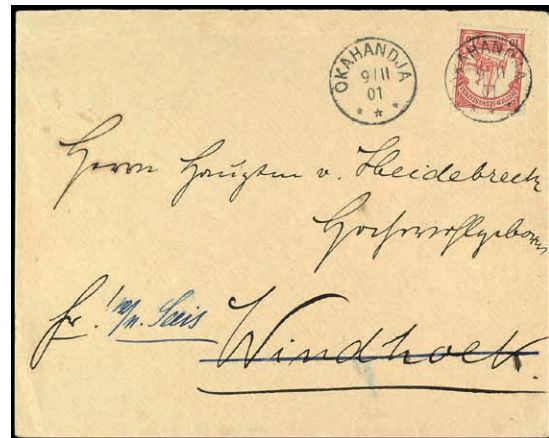 OKAHANDJA
9/11
01
* * *
OKAHANDJA
9/11
01
* * *
Herrn Hauptm v. Heidebreck
Hochwohlgeboren
Fr! Seeis
Windhoek.